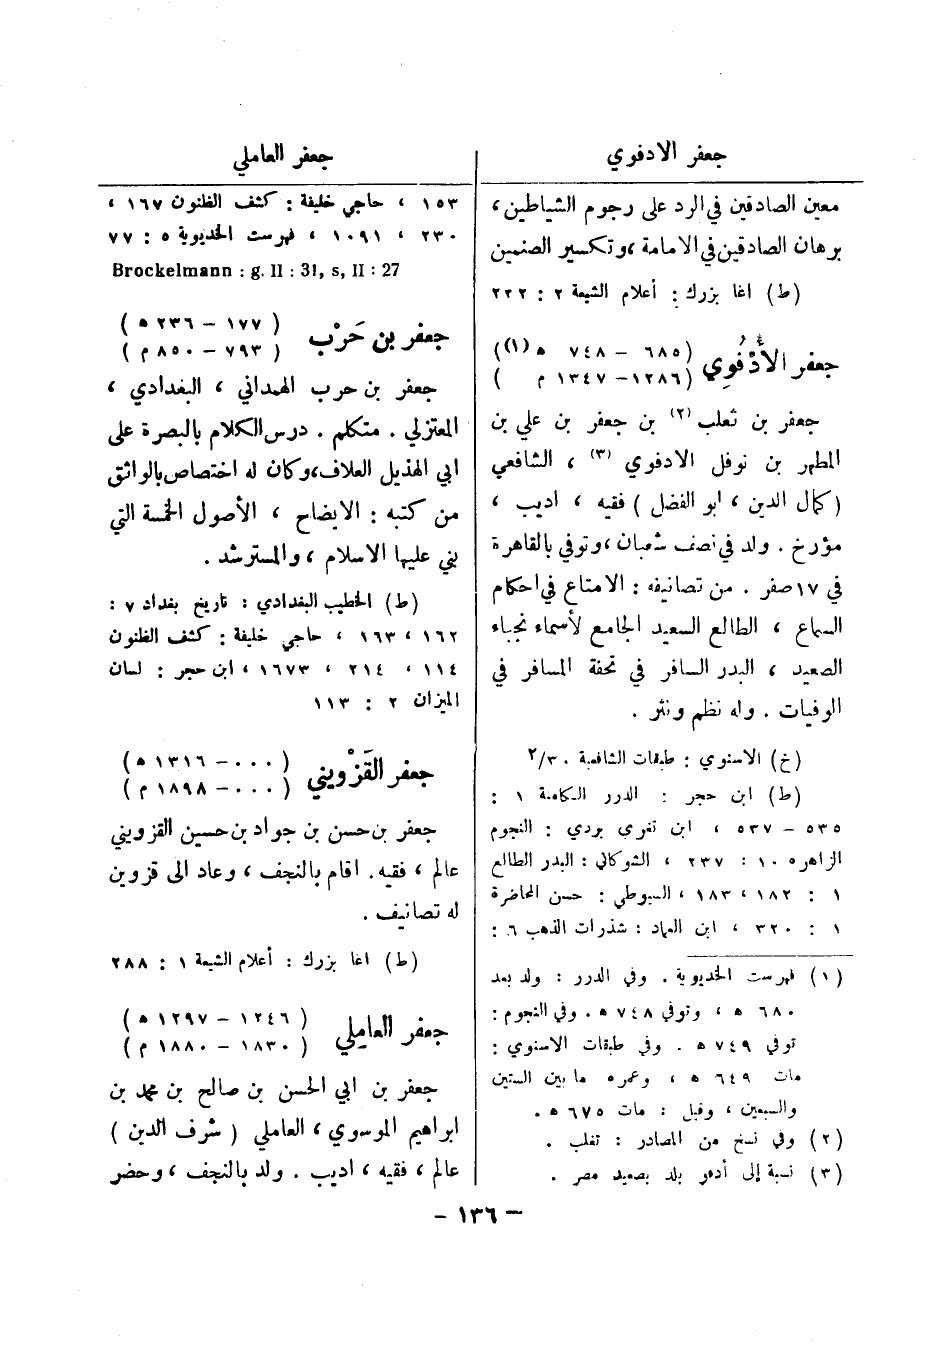 جعفر الادفوي
معين الصادقين في الرد على رجوم الشياطين،
برهان الصادقين في الامامة، وتكسير الصنمين
(ط) اغا بزرك: أعلام الشيعة ٢ : ٢٢٢
جعفر الأُدْفُوِي (٦٨٥ – ٧٤٨ ه (١))
(١٢٨٦ – ١٣٤٧ م)
جعفر بن ثعلب (٢) بن جعفر بن علي بن
المطهر بن نوفل الادفوي (٣) ، الشافعي
(كمال الدين ، ابو الفضل) فقيه ، اديب ،
مؤرخ . ولد في نصف شعبان ، وتوفي بالقاهرة
في ١٧ صفر . من تصانيفه : الامتاع في احكام
السماع ، الطالع السعيد الجامع لأسماء نجباء
الصعيد ، البدر السافر في تحفة المسافر في
الوفيات . وله نظم ونثر .
(خ) الاسنوي : طبقات الشافعية ٢/٣٠
(ط) ابن حجر : الدرر الكامنة ١ :
٥٣٥ – ٥٣٧ ، ابن تغري بردي : النجوم
الزاهره ١٠ : ٢٣٧ ، الشوكاني : البدر الطالع
١ : ١٨٢ ، ١٨٣ ، السيوطي : حسن المحاضرة
١ : ٣٢٠ ، ابن العماد : شذرات الذهب ٦ :
(١) فهرست الخديوية . وفي الدرر : ولد بعد
٦٨٠ ه ، وتوفي ٧٤٨ ه . وفي النجوم :
توفي ٧٤٩ ه . وفي طبقات الاسنوي :
مات ٦٤٩ ه ، وعمره ما بين الستين
والسبعين ، وقيل : مات ٦٧٥ ه .
(٢) وفي نسخ من المصادر : تغلب .
(٣) نسبة إلى أدفو بلد بصعيد مصر .
جعفر العاملي
١٥٣ ، حاجي خليفة : كشف الظنون ١٦٧ ،
٢٣٠ ، ١٠٩١ ، فهرست الخديوية ٥ : ٧٧
Brockelmann : g. II : 31, s, II : 27
جعفر بن حَرْب (١٧٧ – ٢٣٦ ه)
(٧٩٣ – ٨٥٠ م)
جعفر بن حرب الهمداني ، البغدادي ،
المعتزلي . متكلم . درس الكلام بالبصرة على
ابي الهذيل العلاف، وكان له اختصاص بالواثق
من كتبه : الايضاح ، الأصول الخمسة التي
بني عليها الاسلام ، والمسترشد .
(ط) الخطيب البغدادي : تاريخ بغداد ٧ :
١٦٢ ، ١٦٣ ، حاجي خليفة : كشف الظنون
١١٤ ، ٢١٤ ، ١٦٧٣ ، ابن حجر : لسان
الميزان ٢ : ١١٣
جعفر القَزْويني (٠٠٠ – ١٣١٦ ه)
(٠٠٠ – ١٨٩٨ م)
جعفر بن حسن بن جواد بن حسين القزويني
عالم ، فقيه. اقام بالنجف ، وعاد الى قزوين
له تصانيف .
(ط) اغا بزرك : أعلام الشيعة ١ : ٢٨٨
جعفر العامِلي (١٢٤٦ – ١٢٩٧ ه)
(١٨٣٠ – ١٨٨٠ م)
جعفر بن ابي الحسن بن صالح بن محمد بن
ابراهيم الموسوي ، العاملي (شرف الدين)
عالم ، فقيه ، اديب . ولد بالنجف ، وحضر
– ١٣٦ –